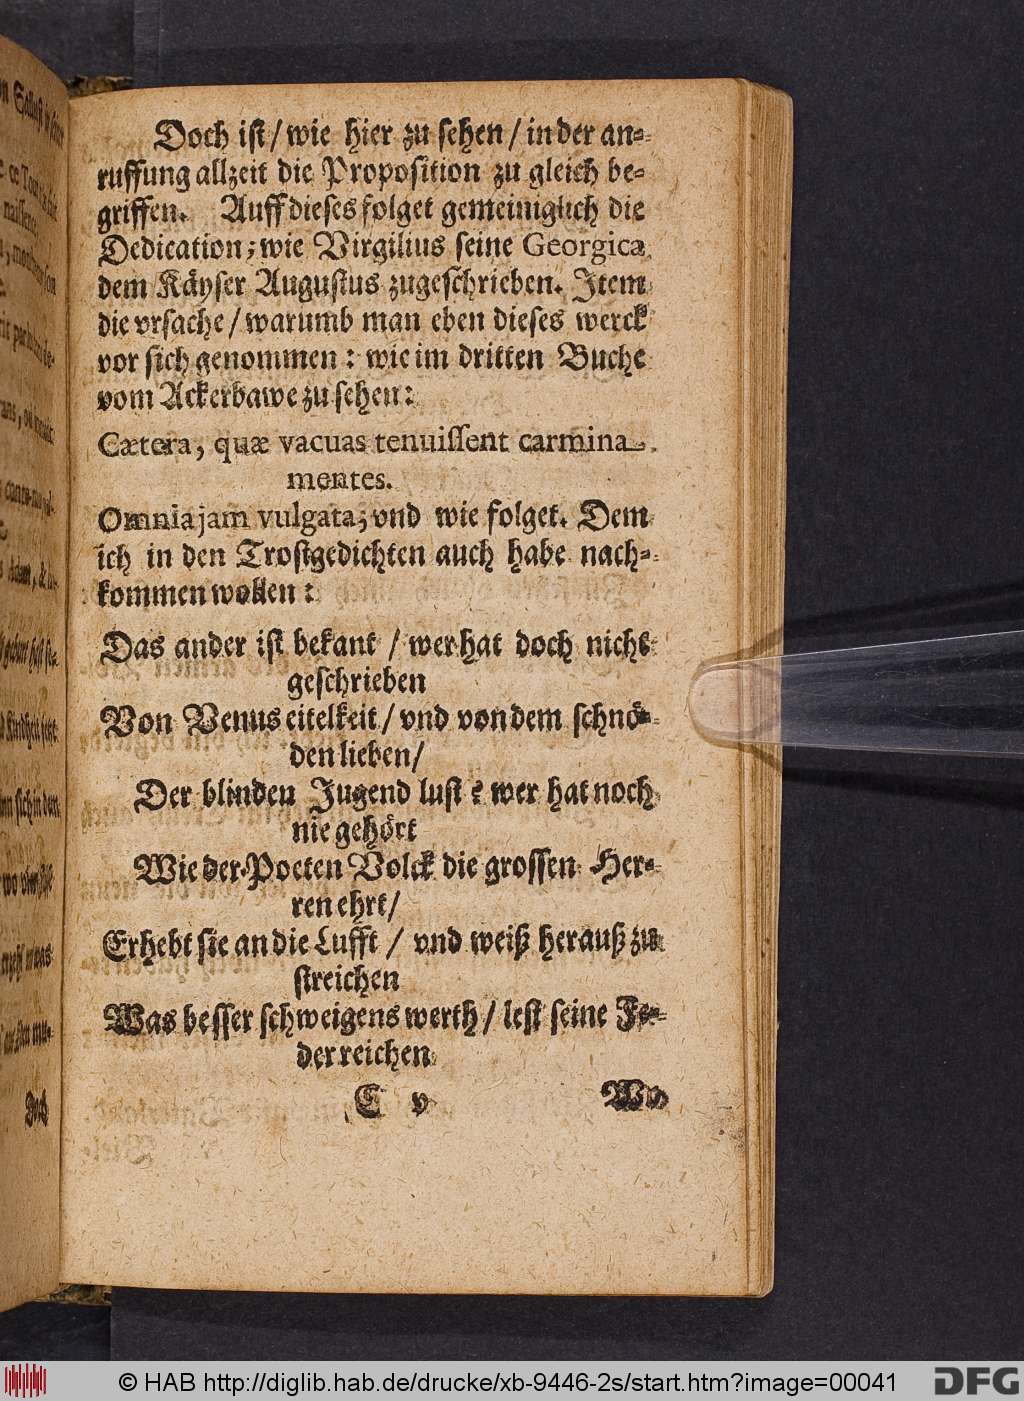 Doch ist / wie hier zu sehen / in der an-
ruffung allzeit die Proposition zu gleich be-
griffen. Auff dieses folget gemeiniglich die
Dedication; wie Virgilius seine Georgica
dem Käyser Augustus zugeschrieben. Item
die vrsache / warumb man eben dieses werck
vor sich genommen: wie im dritten Buche
vom Ackerbawe zu sehen:
Cætera, quæ vacuas tenuissent carmina
mentes.
Omnia jam vulgata; vnd wie folget. Dem
ich in den Trostgedichten auch habe nach-
kommen wollen:
Das ander ist bekant / wer hat doch nicht
geschrieben
Von Venus eitelkeit / vnd von dem schnö-
den lieben /
Der blinden Jugend lust? wer hat noch
nie gehört
Wie der Poeten Volck die grossen Her-
ren ehrt /
Erhebt sie an die Lufft / vnd weiß herauß zu
streichen
Was besser schweigens werth / lest seine Fe-
der reichen
C v Wo
© HAB http://diglib.hab.de/drucke/xb-9446-2s/start.htm?image=00041
DFG